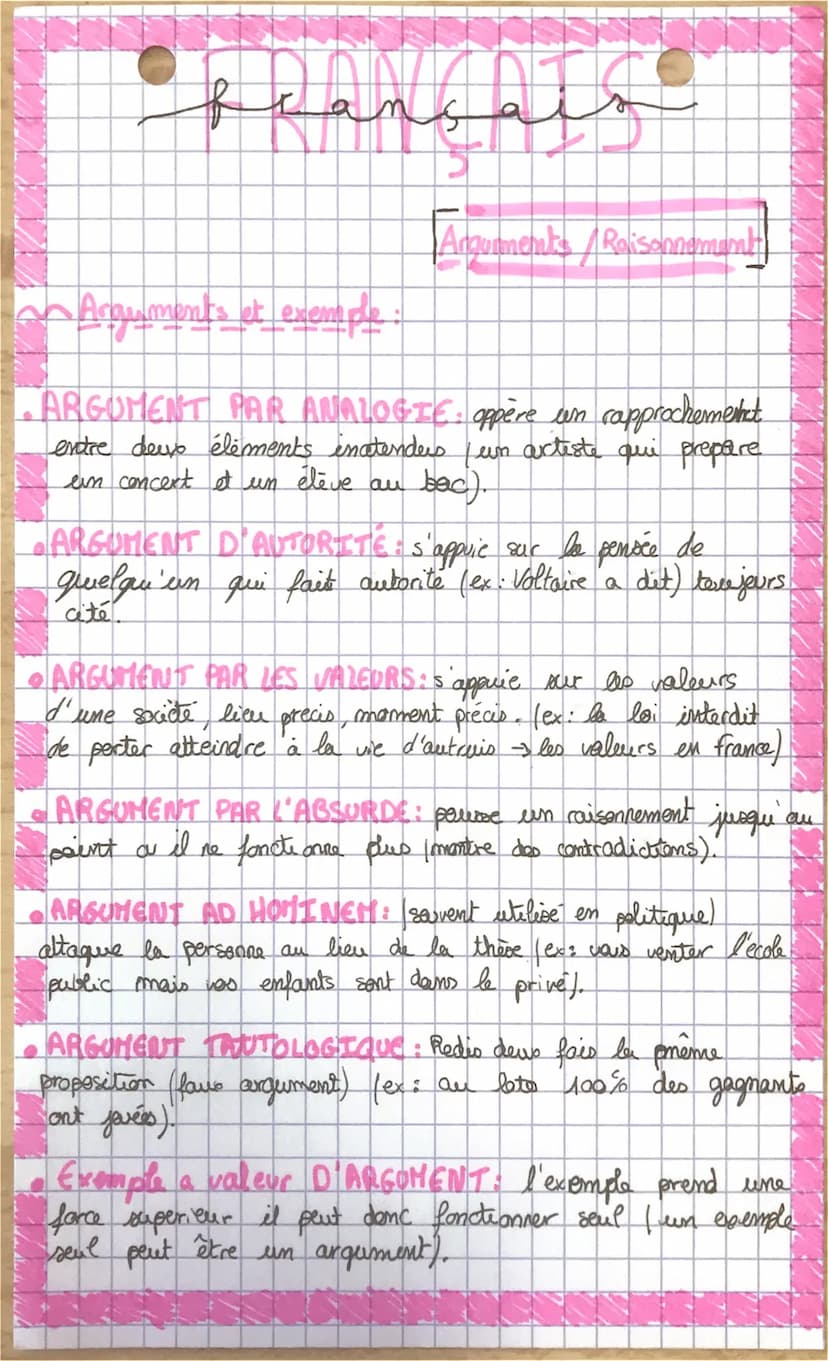 FRANÇAIS
français
Arguments / Raisonnement
Arguments et exemple :
• ARGUMENT PAR ANALOGIE : oppère un rapprochement
entre deux éléments inatendus (un artiste qui prepare
un concert et un élève au bac).
• ARGUMENT D'AUTORITÉ : s'appuie sur la pensée de
quelqu'un qui fait autorité (ex : Voltaire a dit) toujours
cité.
• ARGUMENT PAR LES VALEURS : s'appuie sur les valeurs
d'une société, lieu precis, moment précis. (ex : la loi interdit
de porter atteindre à la vie d'autruis → les valeurs en france)
• ARGUMENT PAR L'ABSURDE : pousse un raisonnement jusqu'au
point ou il ne fonctionne plus (montre des contradictions).
• ARGUMENT AD HOMINEM : (souvent utilisé en politique)
attaque la personne au lieu de la thèse (ex : vous venter l'école
public mais vos enfants sont dans le privé).
• ARGUMENT TAUTOLOGIQUE : Redis deux fois la même
proposition (faux argument) (ex : au loto 100% des gagnants
ont joués).
• Exemple a valeur D'ARGUMENT : l'exemple prend une
force superieur il peut donc fonctionner seul (un exemple
seul peut être un argument).